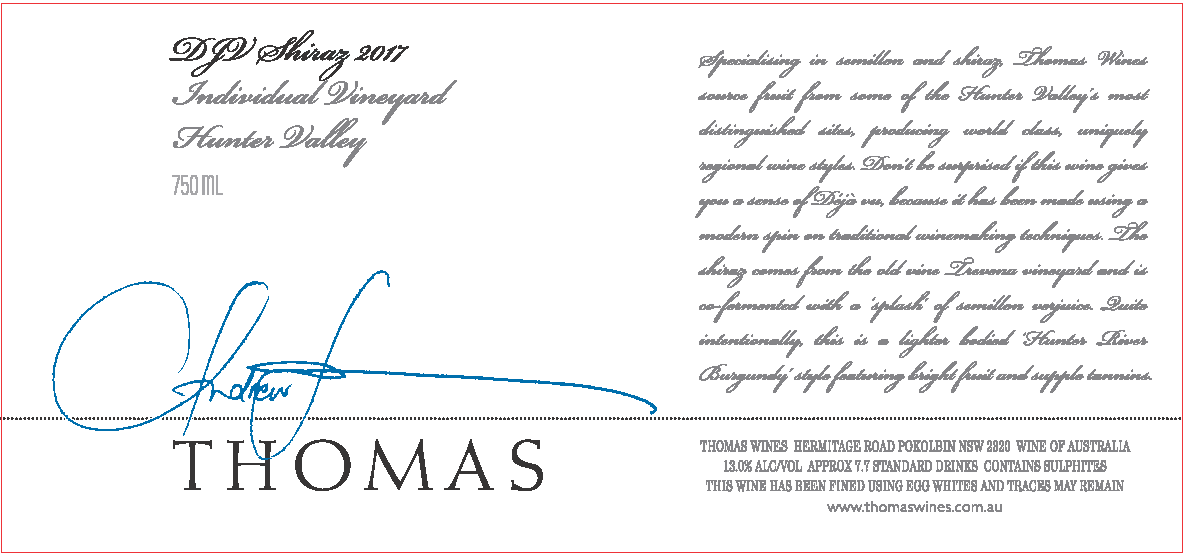 DJV Shiraz 2017
Individual Vineyard
Hunter Valley
750 ML
Andrew
THOMAS
Specialising in semillon and shiraz, Thomas Wines
source fruit from some of the Hunter Valley's most
distinguished sites, producing world class, uniquely
regional wine styles. Don't be surprised if this wine gives
you a sense of Déjà vu, because it has been made using a
modern spin on traditional winemaking techniques. The
shiraz comes from the old vine Trevena vineyard and is
co-fermented with a 'splash' of semillon verjuice. Quite
intentionally, this is a lighter bodied 'Hunter River
Burgundy' style featuring bright fruit and supple tannins.
THOMAS WINES HERMITAGE ROAD POKOLBIN NSW 2320 WINE OF AUSTRALIA
13.0% ALC/VOL APPROX 7.7 STANDARD DRINKS CONTAINS SULPHITES
THIS WINE HAS BEEN FINED USING EGG WHITES AND TRACES MAY REMAIN
www.thomaswines.com.au